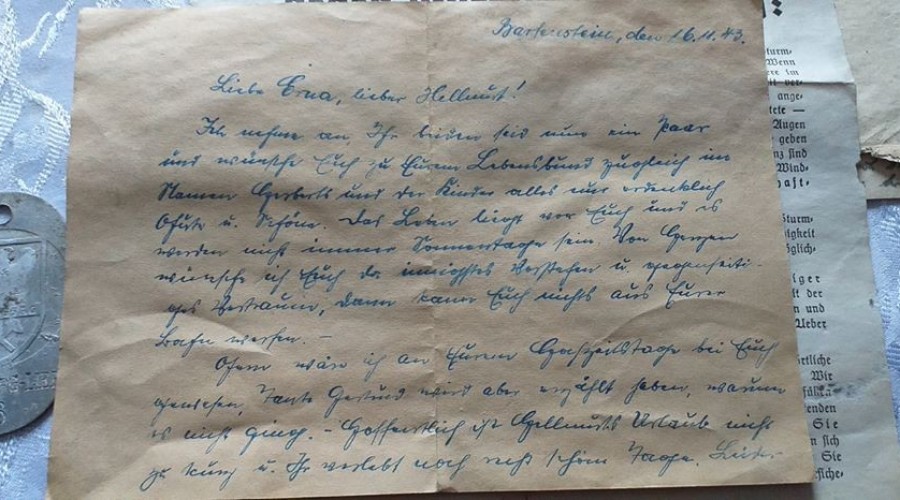 Bartenstein, den 16.11.43.
Liebe Erna, lieber Hellmut!
Ich nehme an, Ihr beiden seid nun ein Paar
und wünsche Euch zu Eurem Lebensbund zugleich im
Namen Herberts und der Kinder alles nur erdenklich
Gute u. Schöne. Das Leben liegt vor Euch und es
werden nicht immer Sonnentage sein. Von Herzen
wünsche ich Euch da innigstes Verstehen u. gegenseiti-
ges Vertrauen, dann kann Euch nichts aus Eurer
Bahn werfen. –
Gern wär ich an Eurem Hochzeitstage bei Euch
gewesen, Tante Gertrud wird aber erzählt haben, warum
es nicht ging. – Hoffentlich ist Hellmuts Urlaub nicht
zu kurz u. Ihr verlebt noch recht schöne Tage. Leider
Wenn
im
ange-
Augen
geben
sind
Wind-
haft-
Sturm-
igkeit
der
und
Ueber
Wir
enden
Sie
sich
Sie